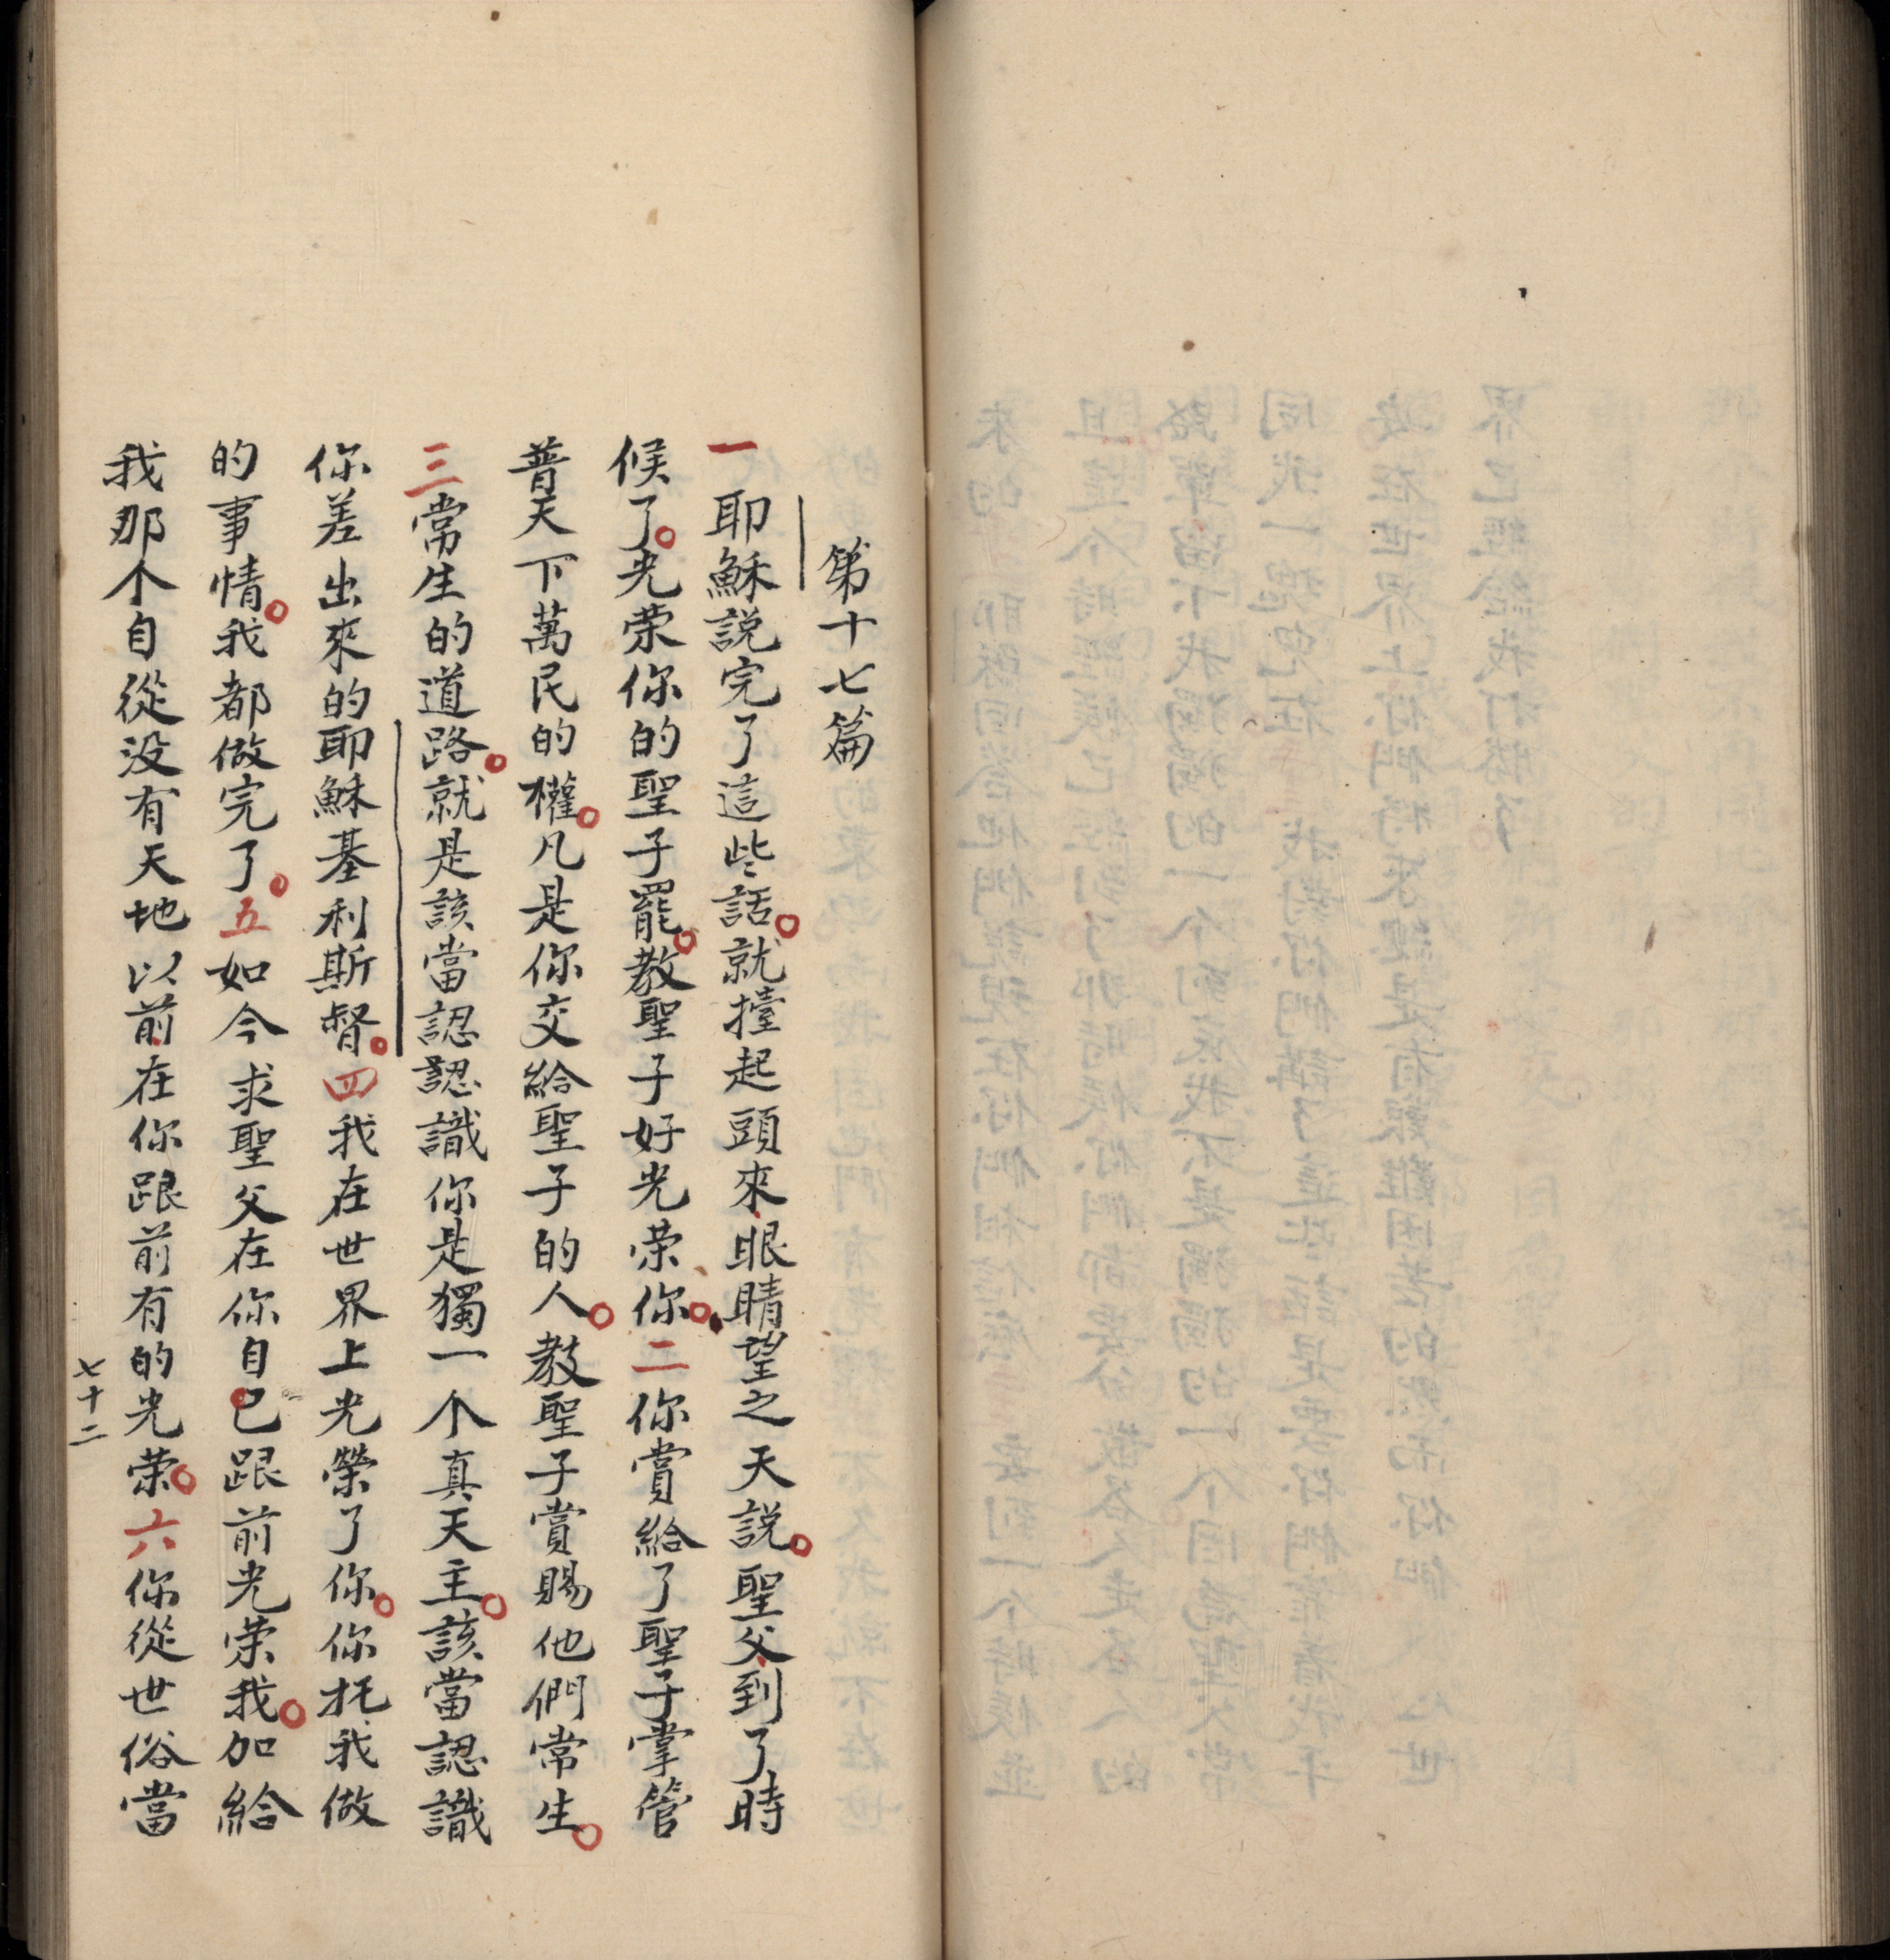 第十七篇
一耶穌説完了這些話。就擡起頭來、眼睛望之天説。聖父、到了時
候了。光荣你的聖子罷。教聖子好光荣你。二你賞給了聖子掌管
普天下萬民的權。凡是你交給聖子的人。教聖子賞賜他們常生。
三常生的道路。就是該當認認識你是獨一个真天主。該當認識
你差出來的耶穌基利斯督。四我在世界上光榮了你。你托我做
的事情。我都做完了。五如今求聖父在你自己跟前光荣我。加給
我那个自從没有天地以前、在你跟前有的光荣。六你從世俗當
七十二